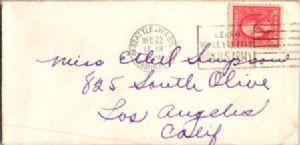 SEATTLE, WASH.
DEC 22
Miss Ethel Simpson
825 South Olive
Los Angeles
Calif